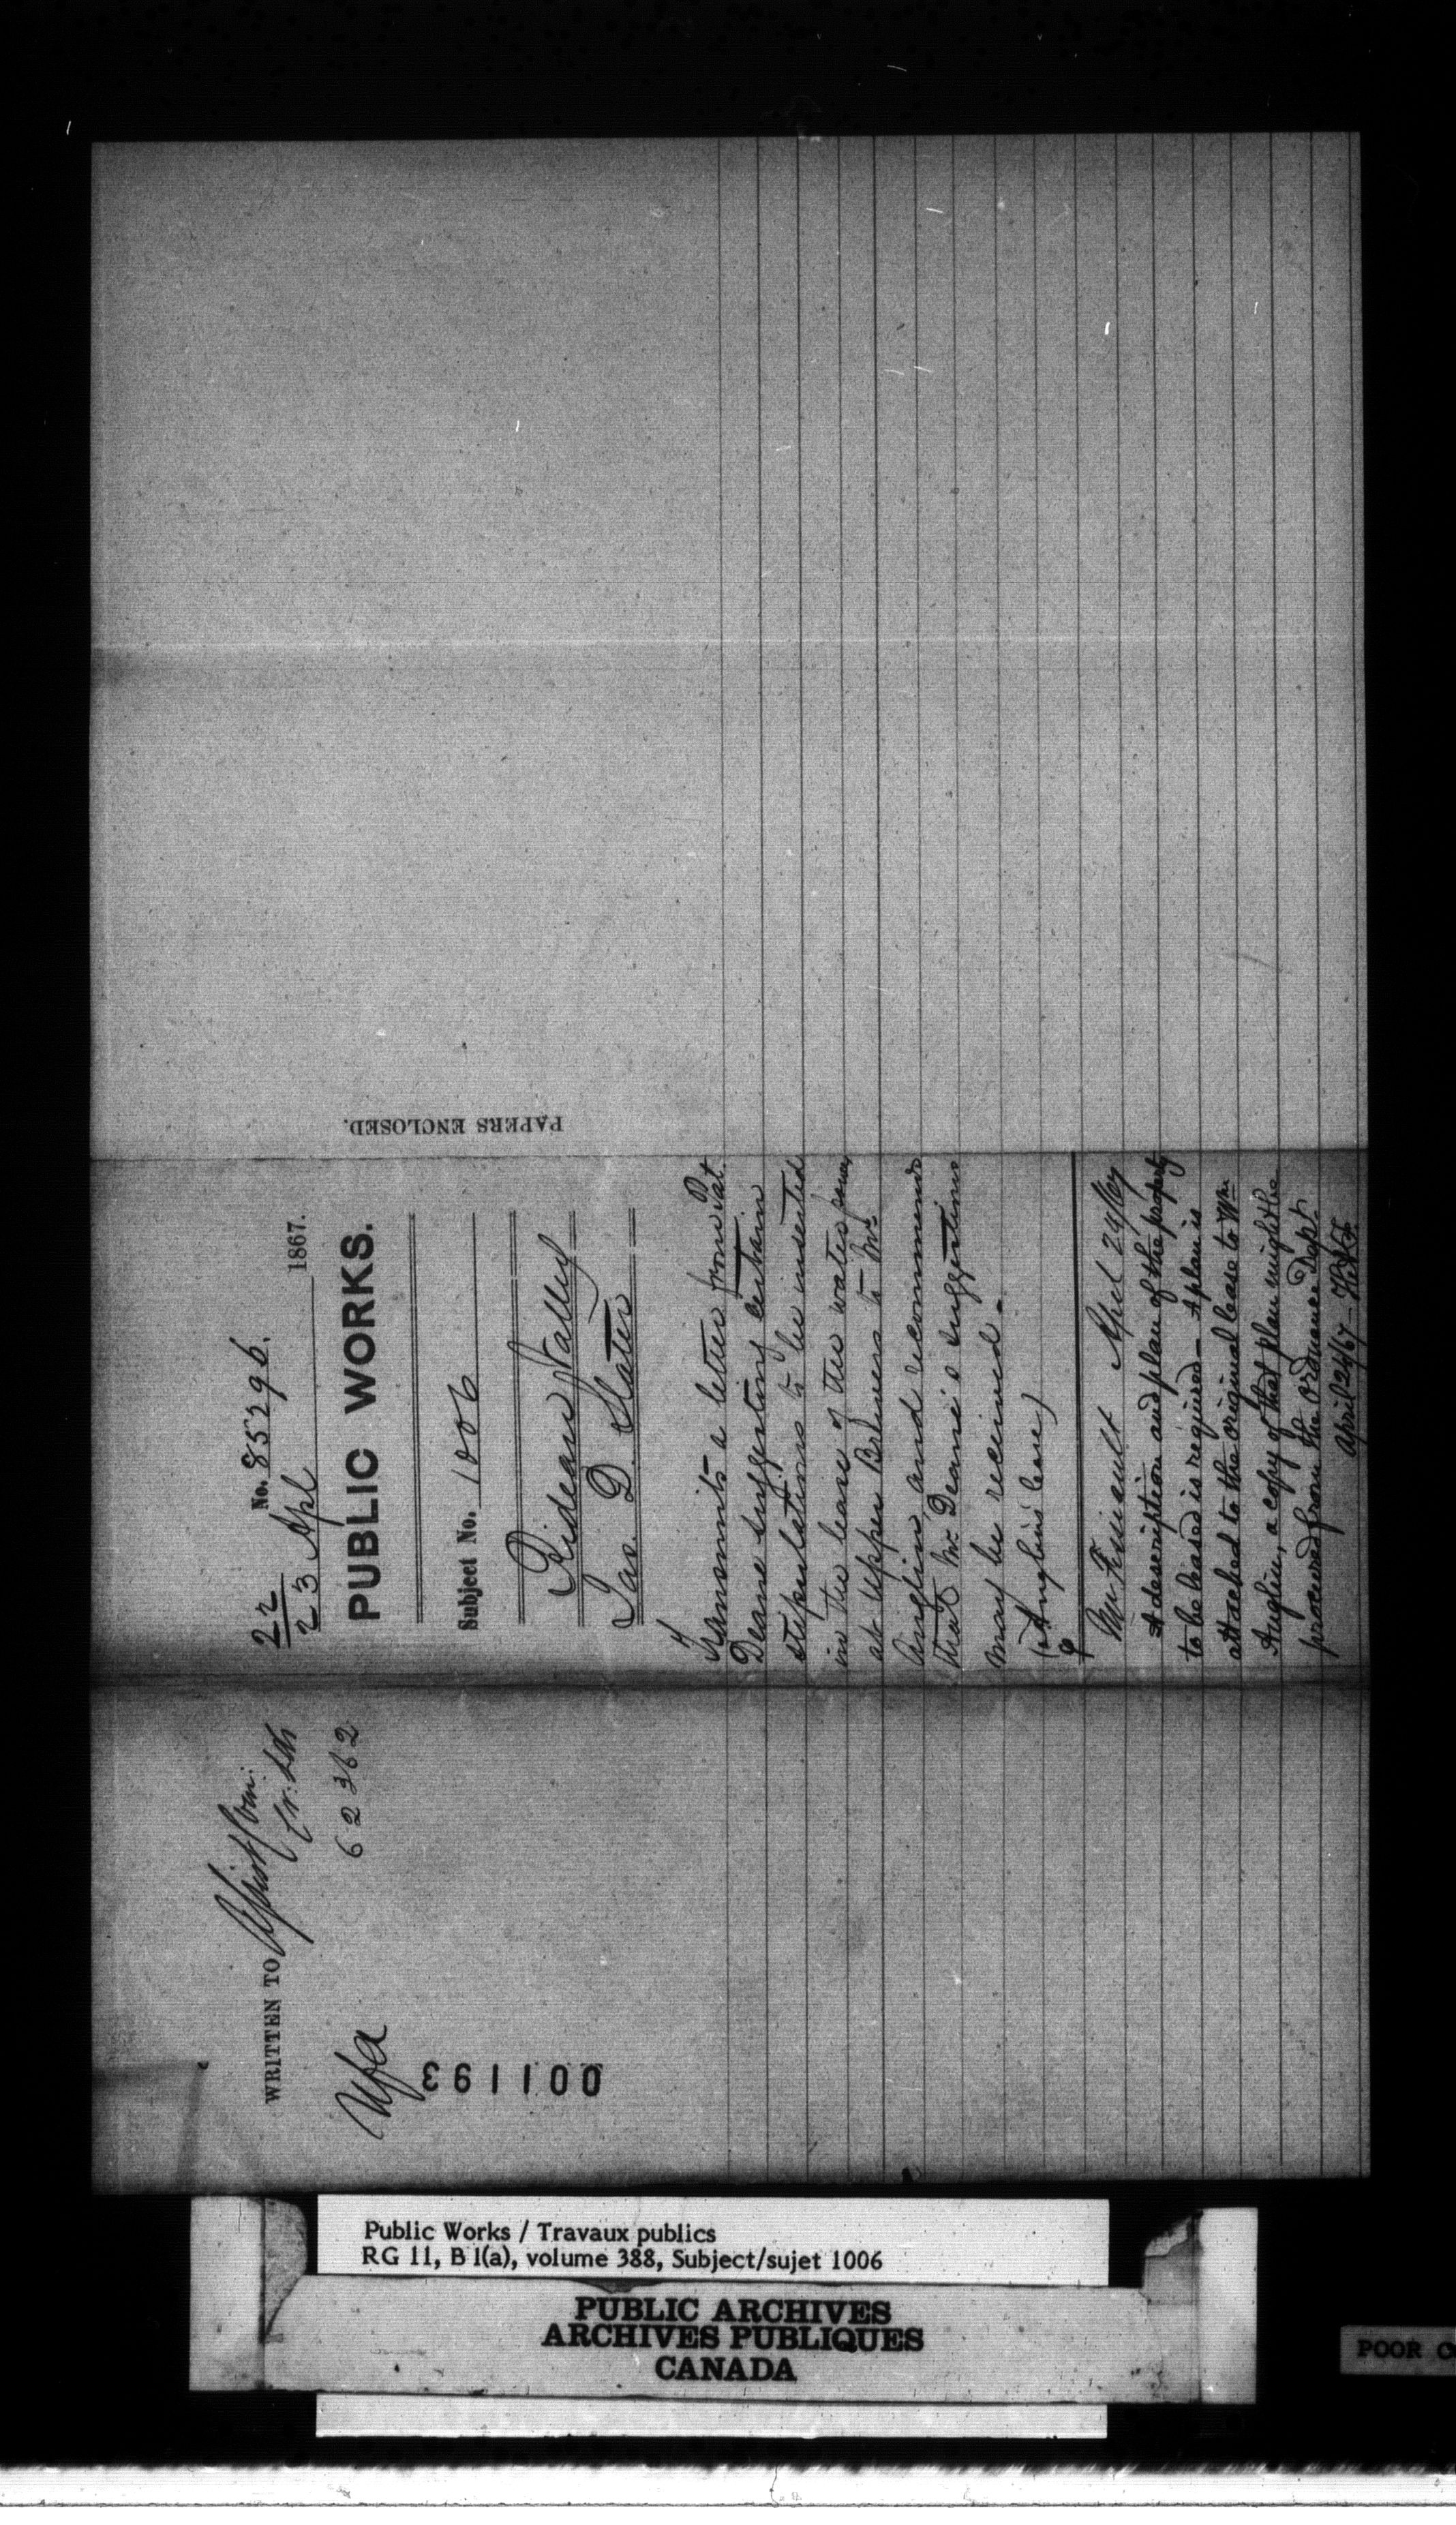 22
23 Apl 1867.
No. 85296.
PUBLIC WORKS.
Subject No. 1006
Rideau Valley
Jas. D. Slater
Transmits a letter from Pat.
Deane suggesting certain
stipulations to be inserted
in the lease of the water power
at Upper Brewers to Mr.
Anglin, and recommends
that Mr. Deane's suggestions
may be received.
(Anglin's lease)
Mr Fissiault April 24/67
A description and plan of the property
to be leased is required — A plan is
attached to the original lease to Wm.
Anglin, a copy of that plan might be
procured from the Ordnance Dept.
April 24/67
PAPERS ENCLOSED.
WRITTEN TO
62362
001193
Public Works / Travaux publics
RG 11, B 1(a), volume 388, Subject/sujet 1006
PUBLIC ARCHIVES
ARCHIVES PUBLIQUES
CANADA
POOR